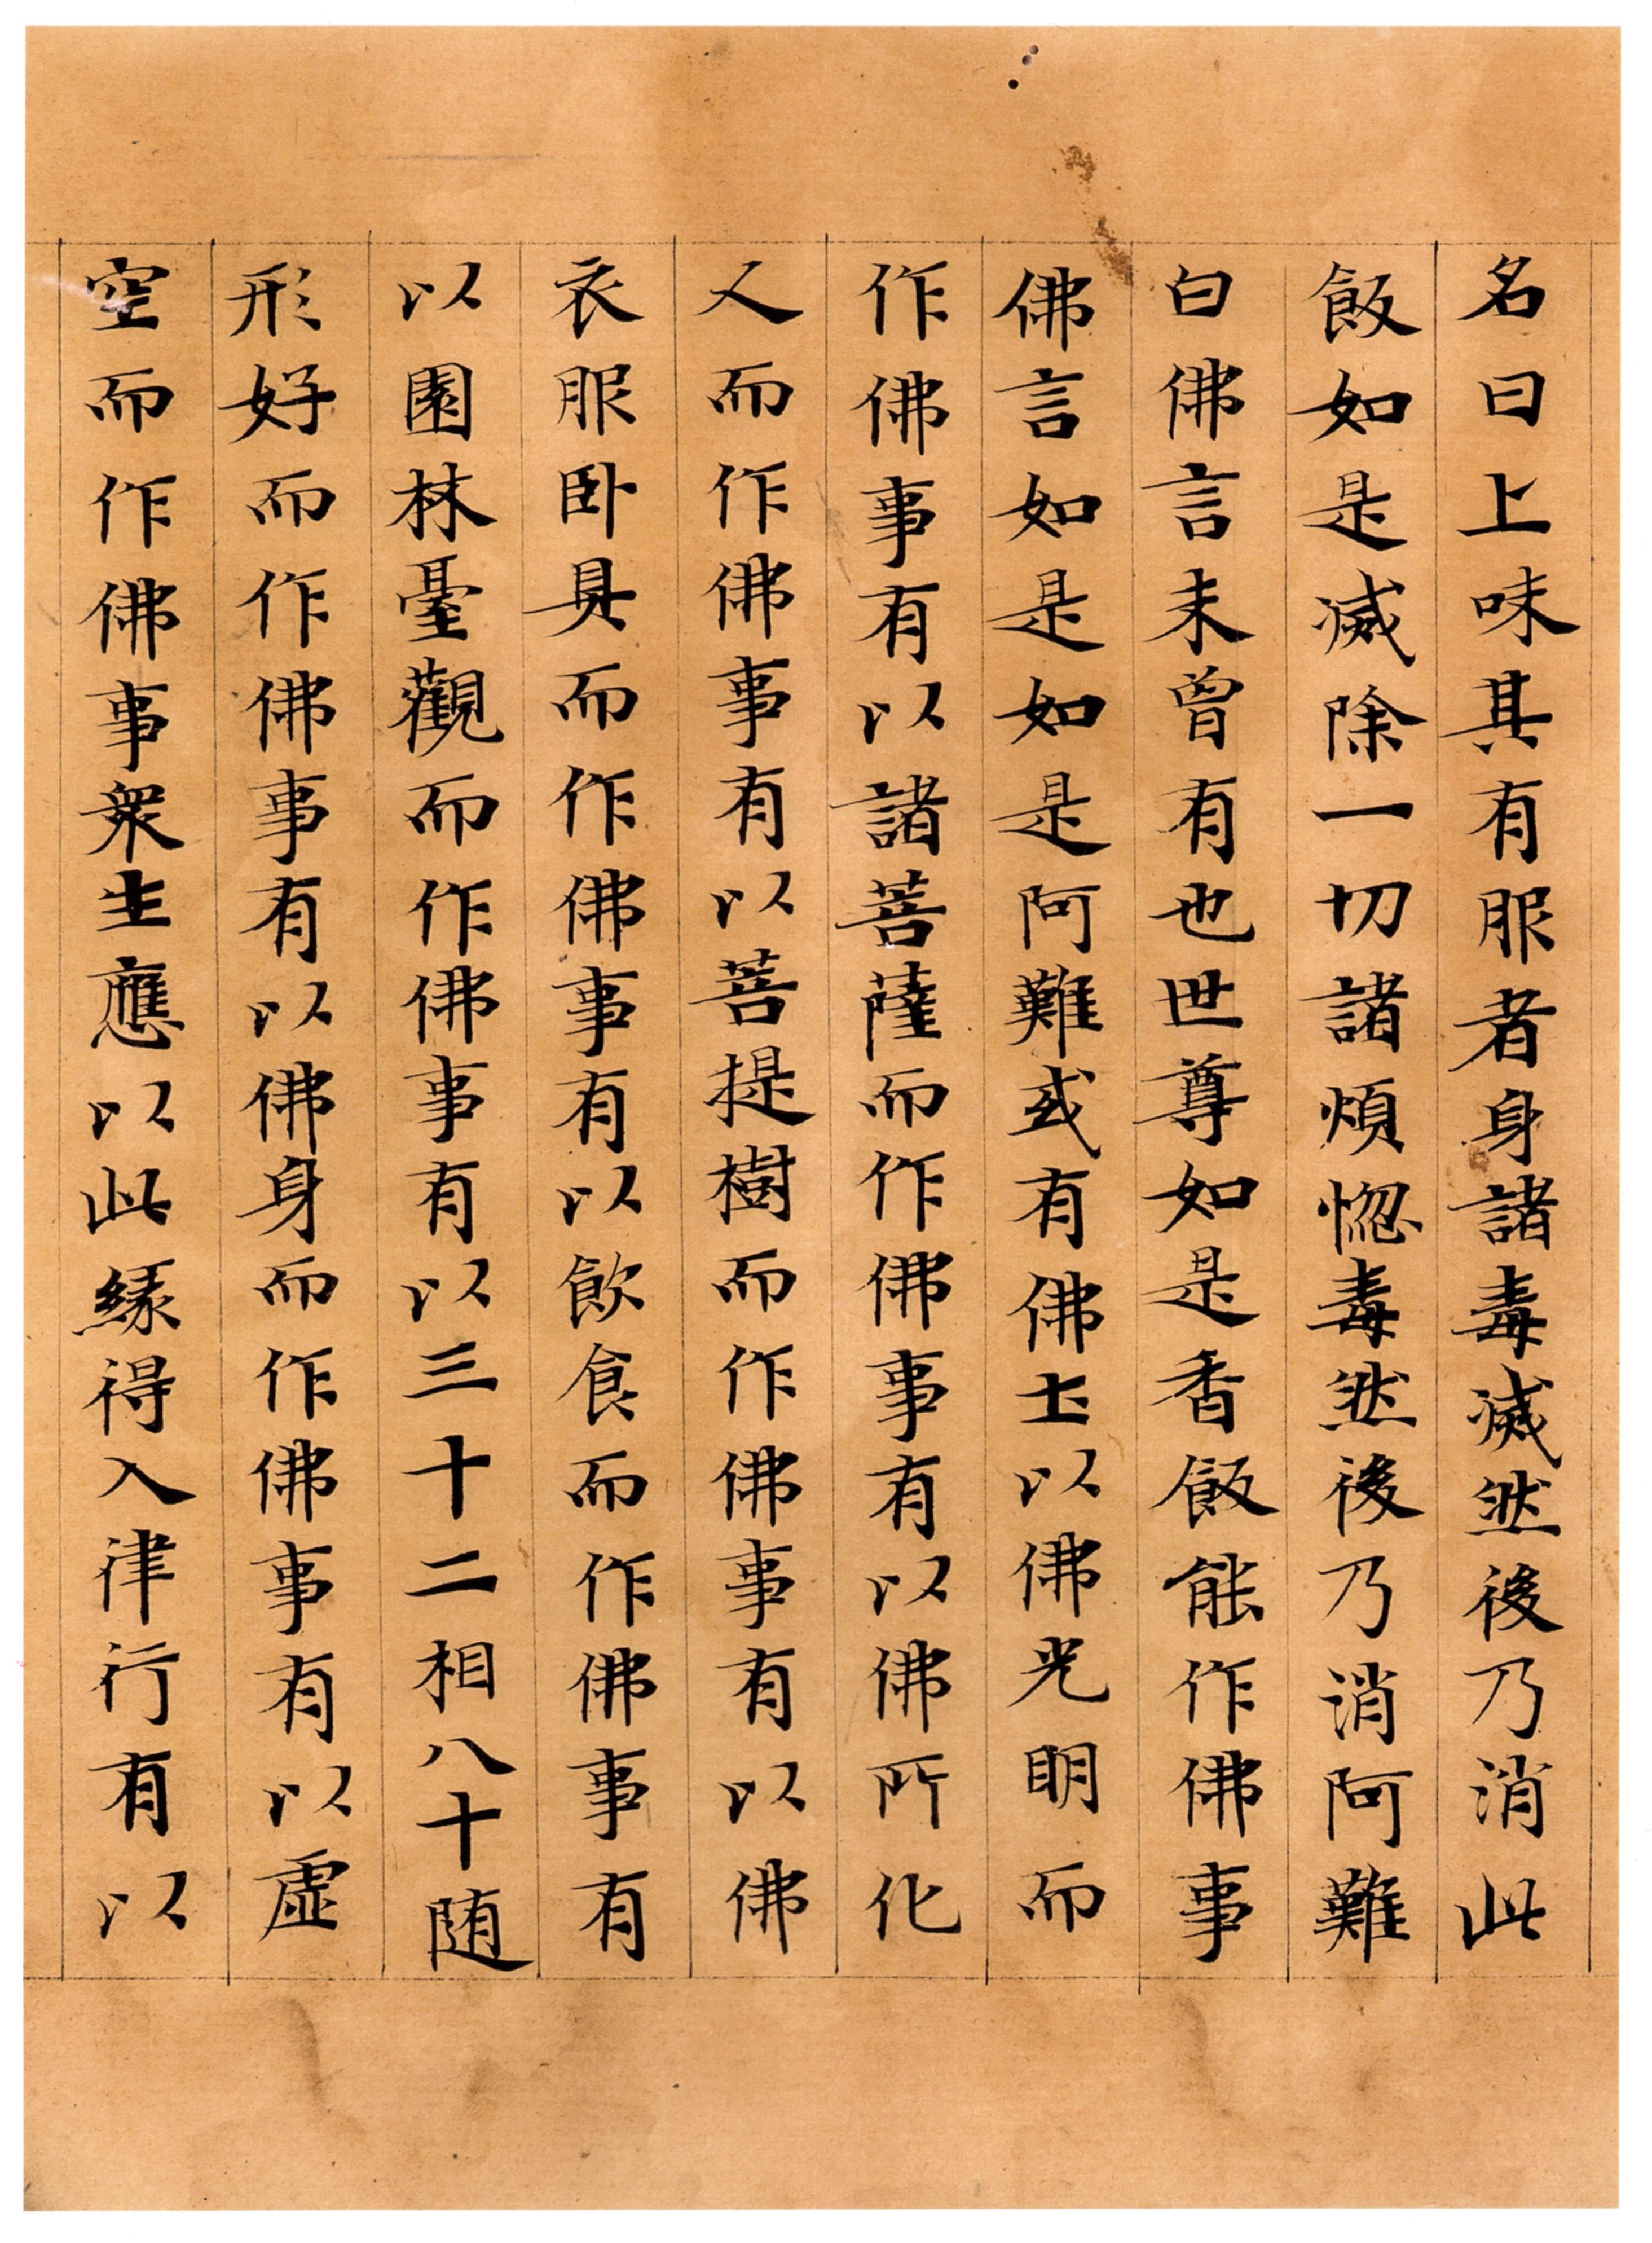 名曰上味其有服者身諸毒滅然後乃消此
飯如是滅除一切諸煩惚毒然後乃消阿難
白佛言未曾有也世尊如是香飯能作佛事
佛言如是如是阿難或有佛土以佛光明而
作佛事有以諸菩薩而作佛事有以佛所化
人而作佛事有以菩提樹而作佛事有以佛
衣服卧具而作佛事有以飲食而作佛事有
以園林臺觀而作佛事有以三十二相八十随
形好而作佛事有以佛身而作佛事有以虛
空而作佛事衆生應以此緣得入律行有以